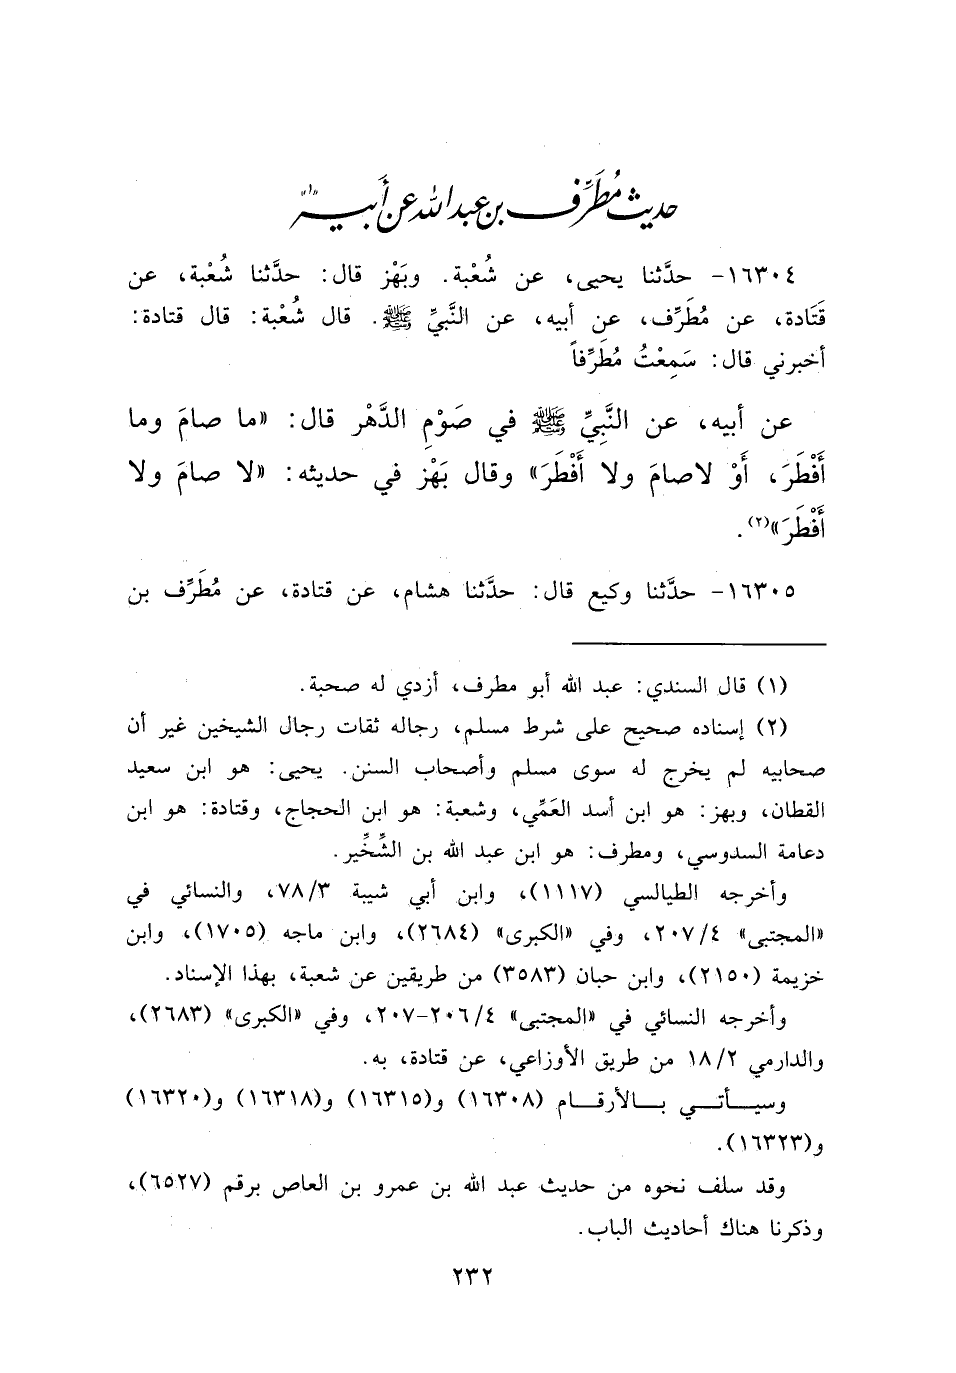 حديث مُطَرِّف بن عبد الله عن أبيه(١)
١٦٣٠٤- حدَّثنا يحيى، عن شُعْبة. وبَهْز قال: حدَّثنا شُعْبة، عن
قَتَادة، عن مُطَرِّف، عن أبيه، عن النَّبيِّ ﷺ. قال شُعْبة: قال قتادة:
أخبرني قال: سَمِعْتُ مُطَرِّفاً
عن أبيه، عن النَّبِيِّ ﷺ في صَوْمِ الدَّهْر قال: «ما صامَ وما
أَفْطَرَ، أَوْ لاصامَ ولا أَفْطَرَ» وقال بَهْز في حديثه: «لا صامَ ولا
أَفْطَرَ»(٢).
١٦٣٠٥- حدَّثنا وكيع قال: حدَّثنا هشام، عن قتادة، عن مُطَرِّف بن
(١) قال السندي: عبد الله أبو مطرف، أزدي له صحبة.
(٢) إسناده صحيح على شرط مسلم، رجاله ثقات رجال الشيخين غير أن
صحابيه لم يخرج له سوى مسلم وأصحاب السنن. يحيى: هو ابن سعيد
القطان، وبهز: هو ابن أسد العَمِّي، وشعبة: هو ابن الحجاج، وقتادة: هو ابن
دعامة السدوسي، ومطرف: هو ابن عبد الله بن الشِّخِّير.
وأخرجه الطيالسي (١١١٧)، وابن أبي شيبة ٧٨/٣، والنسائي في
«المجتبى» ٢٠٧/٤، وفي «الكبرى» (٢٦٨٤)، وابن ماجه (١٧٠٥)، وابن
خزيمة (٢١٥٠)، وابن حبان (٣٥٨٣) من طريقين عن شعبة، بهذا الإسناد.
وأخرجه النسائي في «المجتبى» ٢٠٦/٤-٢٠٧، وفي «الكبرى» (٢٦٨٣)،
والدارمي ١٨/٢ من طريق الأوزاعي، عن قتادة، به.
وسيأتي بالأرقام (١٦٣٠٨) و(١٦٣١٥) و(١٦٣١٨) و(١٦٣٢٠)
و(١٦٣٢٣).
وقد سلف نحوه من حديث عبد الله بن عمرو بن العاص برقم (٦٥٢٧)،
وذكرنا هناك أحاديث الباب.
٢٣٢